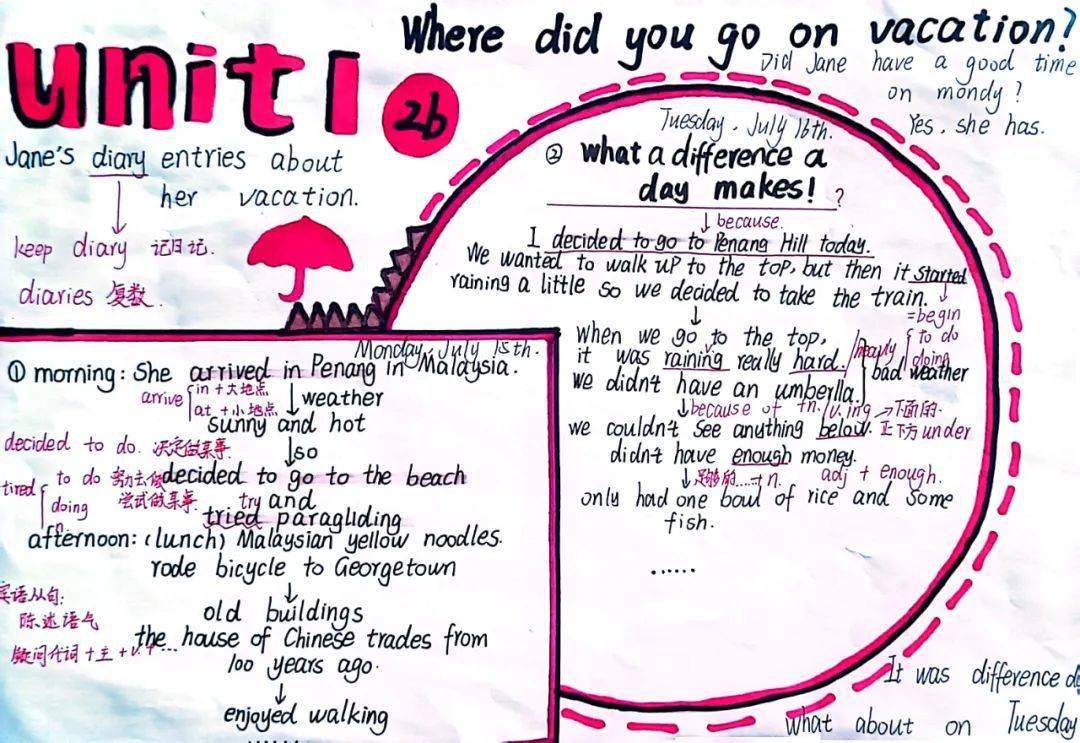 Where did you go on vacation?
unit1
2b
Did Jane have a good time
on mondy?
Yes, she has.
Jane's diary entries about
her vacation.
keep diary 记日记.
diaries 复数.
Monday, July 15th.
① morning: She arrived in Penang in Malaysia.
arrive
in + 大地点
at + 小地点
weather
sunny and hot
so
decided to do. 决定做某事.
decided to go to the beach
tired
to do 努力去做
doing 尝试做某事
n.
try and
tried paragliding
afternoon: (lunch) Malaysian yellow noodles.
rode bicycle to Georgetown
old buildings
the house of Chinese trades from
100 years ago.
宾语从句:
陈述语气
疑问代词+主+v.+...
enjoyed walking
......
Tuesday, July 16th.
② what a difference a
day makes!
?
because.
I decided to go to Penang Hill today.
We wanted to walk up to the top, but then it started
raining a little so we decided to take the train.
=begin
to do
doing
when we go to the top,
it was raining really hard. /heavily
bad weather
we didn't have an umberlla.
because of +n./v.ing
→下面的.
we couldn't see anything below. 正下方 under
didn't have enough money.
足够的...+n. adj + enough.
only had one boul of rice and some
fish.
......
It was difference d
what about on Tuesday